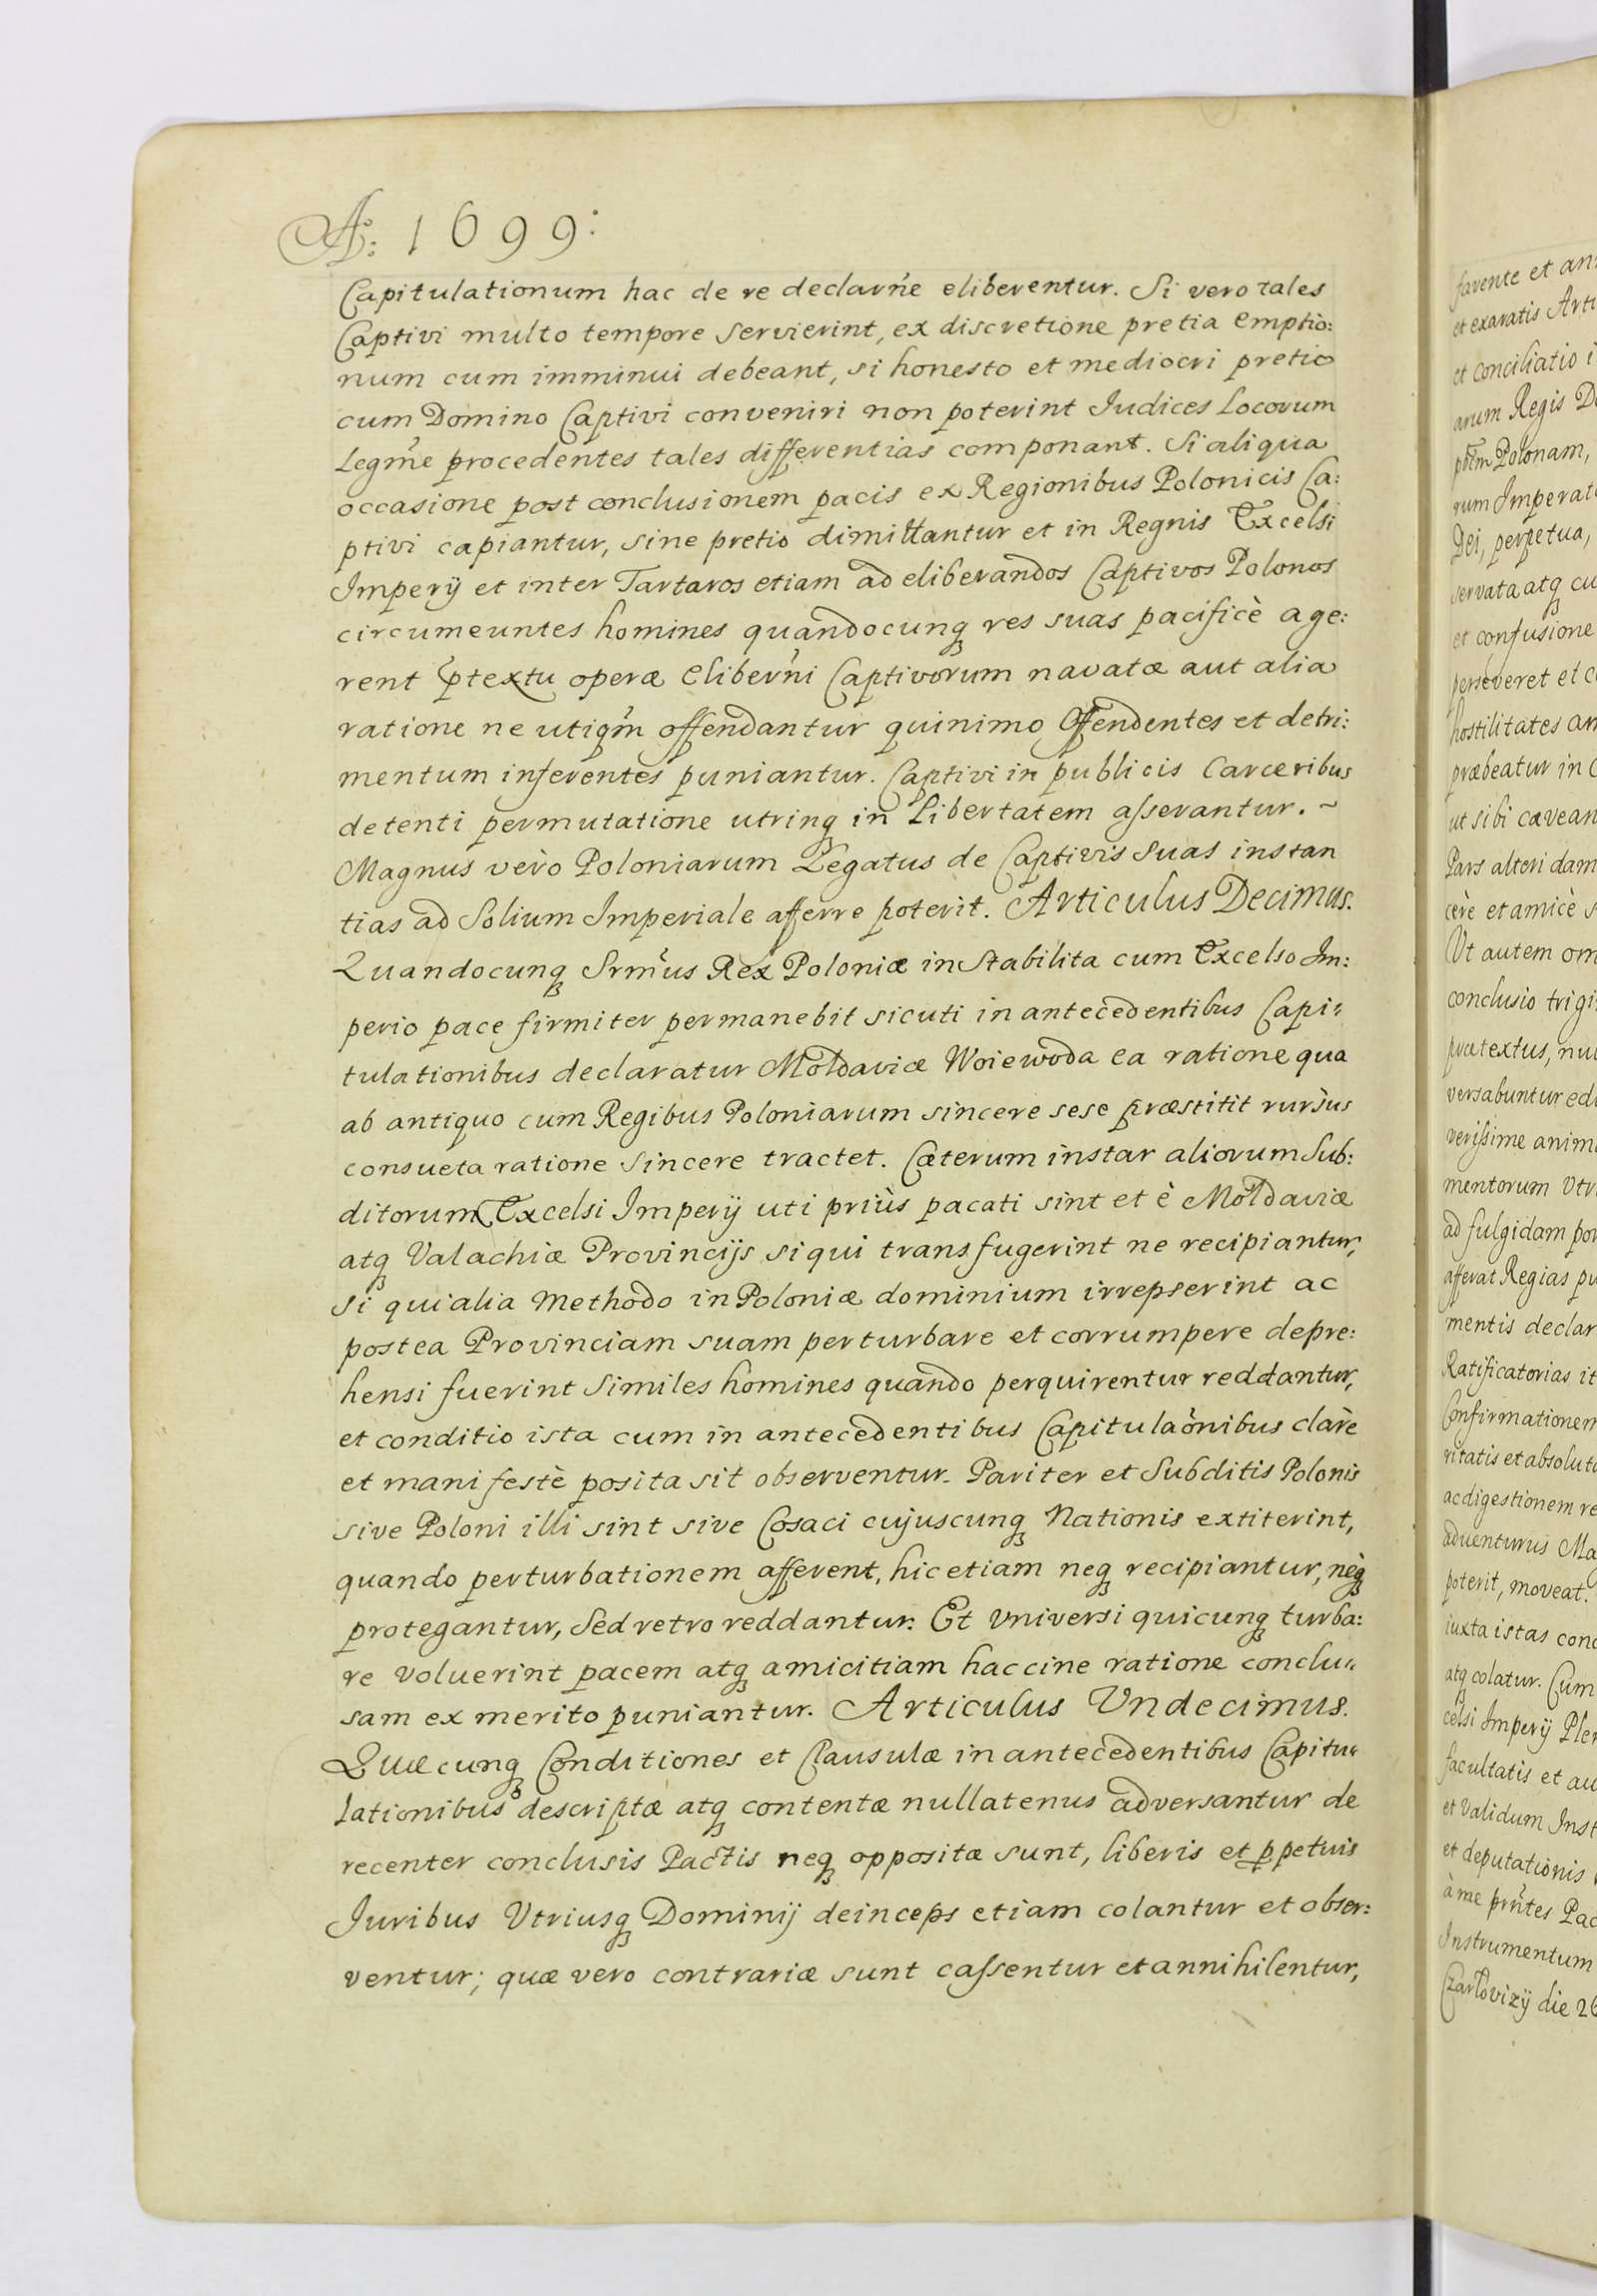 A: 1699:
Capitulationum hac de re declarñe eliberentur. Si vero tales
Captivi multo tempore servierint, ex discretione pretia emptio:
num cum imminui debeant, si honesto et mediocri pretio
cum Domino Captivi conveniri non poterint Iudices Locorum
Legm̃e procedentes tales differentias componant. Si aliqua
occasione post conclusionem pacis ex Regionibus Polonicis Ca:
ptivi capiantur, sine pretio dimittantur et in Regnis Excelsi
Imperÿ et inter Tartaros etiam ad eliberandos Captivos Polonos
circumeuntes homines quandocunqꝫ res suas pacificè age:
rent p̃textu operæ eliberñi Captivorum navatæ aut alia
ratione ne utiqm̃ offendantur quinimo Offendentes et detri:
mentum inferentes puniantur. Captivi in publicis Carceribus
detenti permutatione utrinqꝫ in Libertatem asserantur. ~
Magnus vero Poloniarum Legatus de Captivis suas instan
tias ad Solium Imperiale afferre poterit. Articulus Decimus.
Quandocunqꝫ Srm̃us Rex Poloniæ in Stabilita cum Excelso Im:
perio pace firmiter permanebit sicuti in antecedentibus Capi:
tulationibus declaratur Moldaviæ Woiewoda ea ratione qua
ab antiquo cum Regibus Poloniarum sincere sese præstitit rursus
consueta ratione sincere tractet. Cæterum instar aliorum Sub:
ditorum Excelsi Imperÿ uti priùs pacati sint et è Moldaviæ
atqꝫ Valachiæ Provincijs si qui transfugerint ne recipiantur,
si qui alia Methodo in Poloniæ dominium irrepserint ac
postea Provinciam suam perturbare et corrumpere depre:
hensi fuerint similes homines quando perquirentur reddantur,
et conditio ista cum in antecedentibus Capitulaõnibus clarè
et manifestè posita sit observentur. Pariter et Subditis Polonis
sive Poloni illi sint sive Cosaci cujuscunqꝫ Nationis extiterint,
quando perturbationem afferent, hic etiam neqꝫ recipiantur, neqꝫ
protegantur, sed retro reddantur. Et Vniversi quicunqꝫ turba:
re voluerint pacem atqꝫ amicitiam haccine ratione conclu:
sam ex merito puniantur. Articulus Vndecimus.
Quæcunqꝫ Conditiones et Clausulæ in antecedentibus Capitu:
lationibus descriptæ atqꝫ contentæ nullatenus adversantur de
recenter conclusis Pactis neqꝫ oppositæ sunt, liberis et ꝑpetuis
Iuribus Vtriusqꝫ Dominij deinceps etiam colantur et obser:
ventur; quæ vero contrariæ sunt cassentur et annihilentur,
favente et
et exaratis
et conciliatio
arum Regis
Polonam,
rum
Dei, perpetua,
servata atqꝫ
et confusione
perseveret et
hostilitates
præbeatur in
ut sibi
Pars alteri
cère et amicè
Vt autem
conclusio
prætextus,
versabuntur
verissime
mentorum
ad fulgidam
afferat Regias
mentis
Ratificatorias
ritatis et
ac digestionem
adventurus
poterit, moveat.
iuxta istas
atqꝫ colatur. Cum
celsi Imperÿ
facultatis et
et Validum
et deputationis
à me prñtes
Instrumentum
die 26